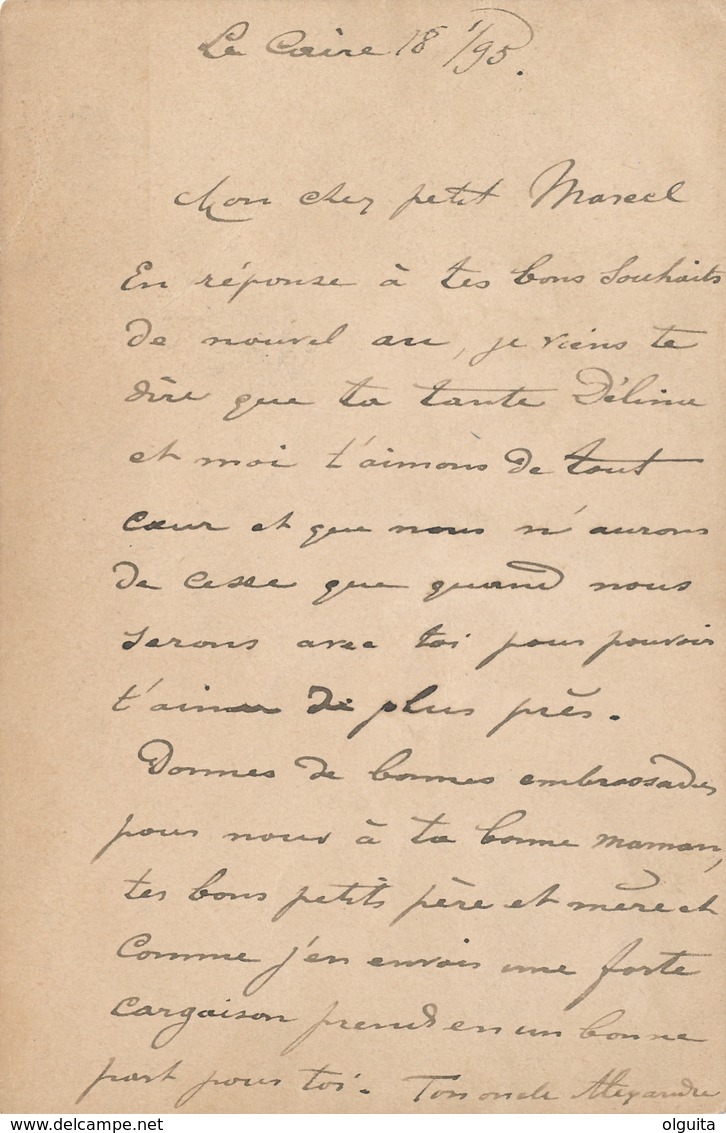 Le Caire 18 1/95.
Mon cher petit Marcel
En réponse à tes bons souhaits
de nouvel an, je viens te
dire que ta tante Déline
et moi t'aimons de tout
cœur et que nous n'aurons
de cesse que quand nous
serons avec toi pour pouvoir
t'aimer de plus près.
Donnes de bonnes embrassades
pour nous à ta bonne maman,
tes bons petits père et mère et
comme j'en envois une forte
cargaison prends en un bonne
part pour toi. Ton oncle Alexandre
olguita